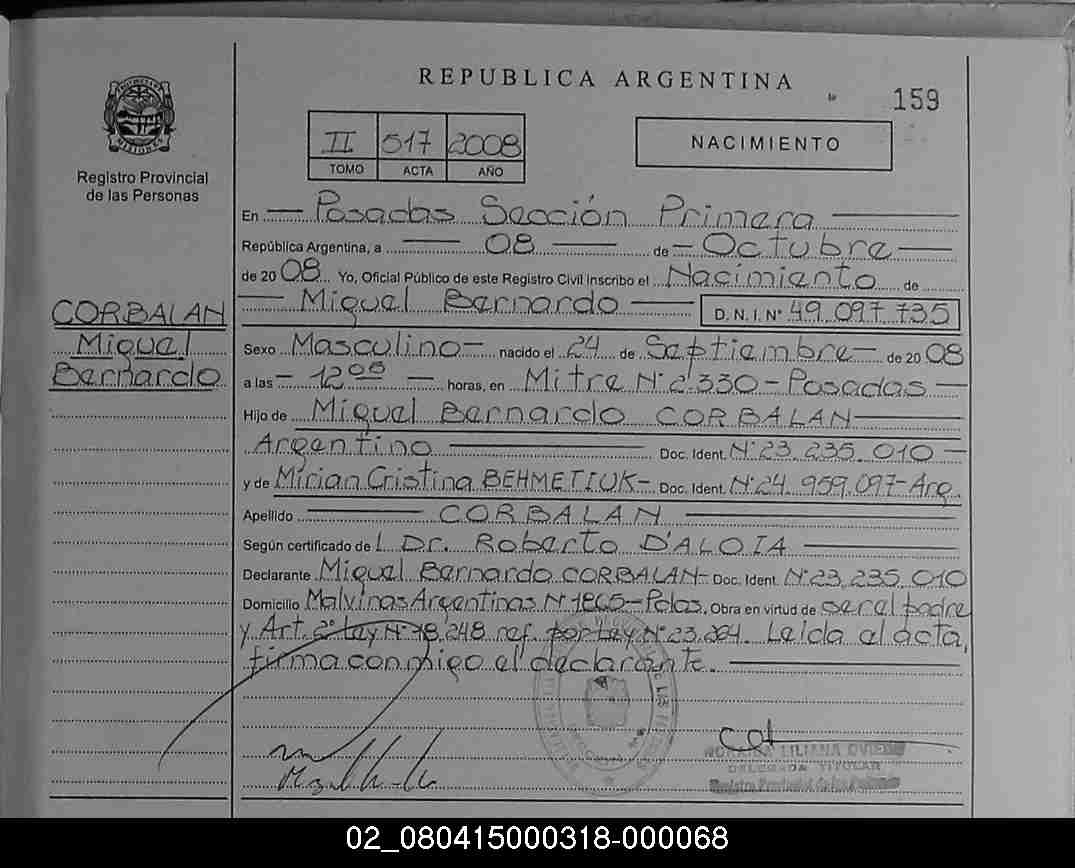 REPUBLICA ARGENTINA
159
II 517 2008
TOMO ACTA AÑO
NACIMIENTO
MISIONES
Registro Provincial
de las Personas
CORBALAN
Miguel
Bernardo
En Posadas Sección Primera
República Argentina, a 08 de Octubre
de 2008 Yo, Oficial Público de este Registro Civil inscribo el Nacimiento de
Miguel Bernardo D. N. I. Nº 49.097.735
Sexo Masculino nacido el 24 de Septiembre de 2008
a las 12 00 horas, en Mitre Nº 2.330 - Posadas
Hijo de Miguel Bernardo CORBALAN
Argentino Doc. Ident. Nº 23.235.010
y de Mirian Cristina BEHMETIUK - Doc. Ident. Nº 24.959.097 - Arg.
Apellido CORBALAN
Según certificado del Dr. Roberto D'ALOIA
Declarante Miguel Bernardo CORBALAN - Doc. Ident. Nº 23.235.010
Domicilio Malvinas Argentinas Nº - Pdas. Obra en virtud de ser el padre
y Art. 2º Ley Nº 18.248 ref. por Ley Nº 23.264. Leida el acta,
firma conmigo el declarante.
LILIANA
DELEGADA TITULAR
Registro Provincial de las Personas
02_080415000318-000068